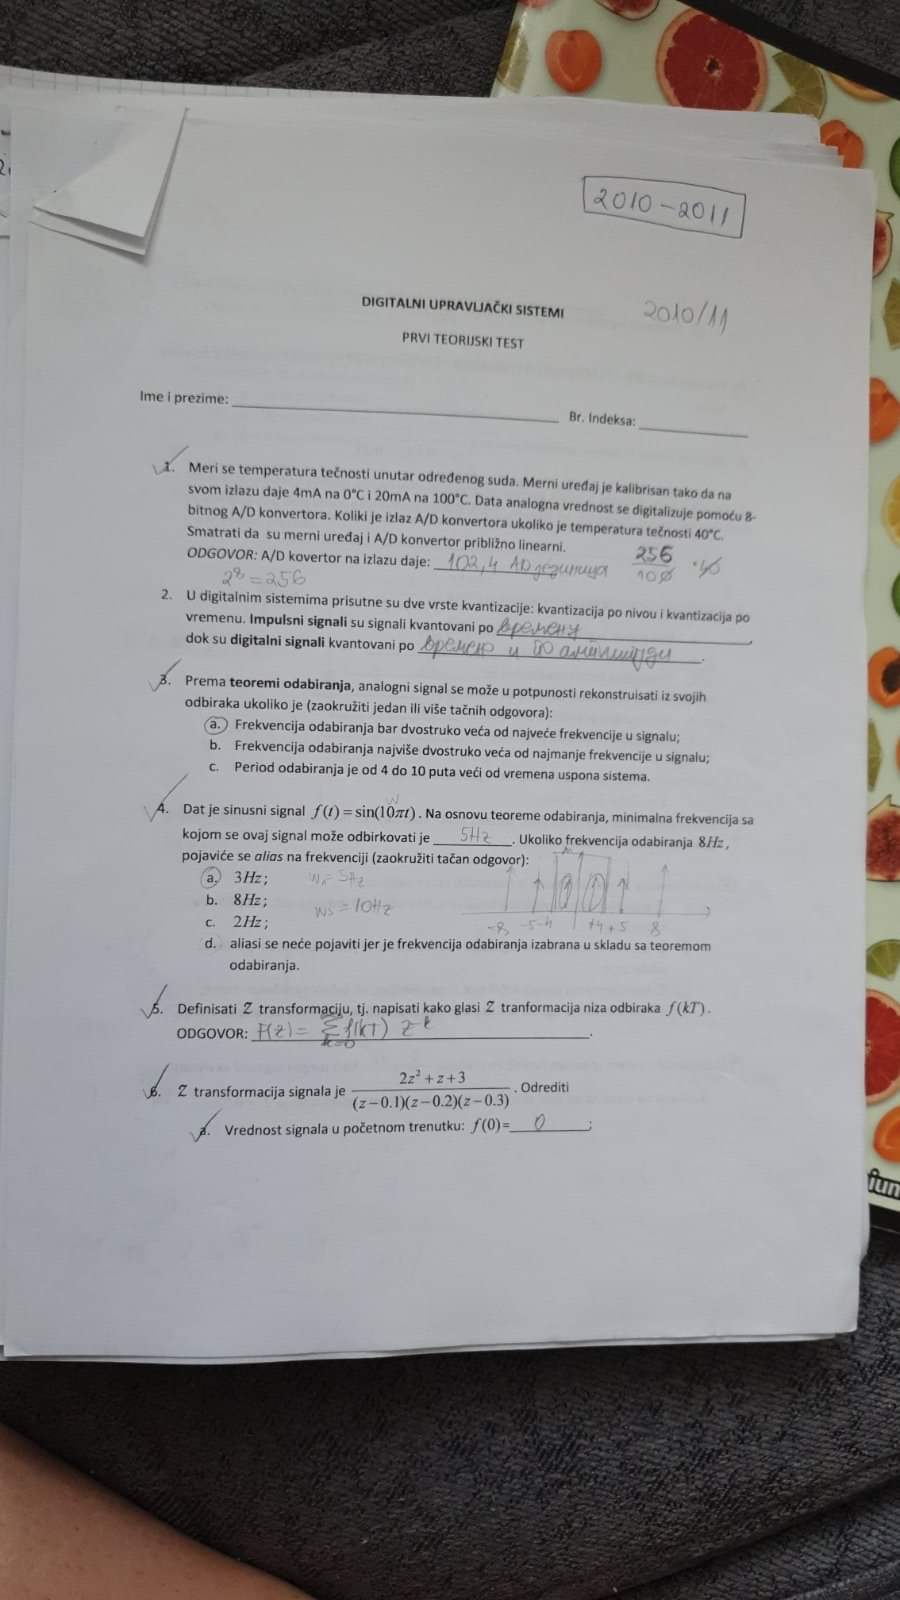 2010-2011
DIGITALNI UPRAVLJAČKI SISTEMI
2010/11
PRVI TEORIJSKI TEST
Ime i prezime: Br. Indeksa:
1. Meri se temperatura tečnosti unutar određenog suda. Merni uređaj je kalibrisan tako da na
svom izlazu daje 4mA na 0°C i 20mA na 100°C. Data analogna vrednost se digitalizuje pomoću 8-
bitnog A/D konvertora. Koliki je izlaz A/D konvertora ukoliko je temperatura tečnosti 40°C.
Smatrati da su merni uređaj i A/D konvertor približno linearni.
ODGOVOR: A/D kovertor na izlazu daje: 102,4 AD јединица
256/100 · 40
2^8 = 256
2. U digitalnim sistemima prisutne su dve vrste kvantizacije: kvantizacija po nivou i kvantizacija po
vremenu. Impulsni signali su signali kvantovani po времену,
dok su digitalni signali kvantovani po времену и по амплитуди.
3. Prema teoremi odabiranja, analogni signal se može u potpunosti rekonstruisati iz svojih
odbiraka ukoliko je (zaokružiti jedan ili više tačnih odgovora):
a. Frekvencija odabiranja bar dvostruko veća od najveće frekvencije u signalu;
b. Frekvencija odabiranja najviše dvostruko veća od najmanje frekvencije u signalu;
c. Period odabiranja je od 4 do 10 puta veći od vremena uspona sistema.
w
4. Dat je sinusni signal f(t) = sin(10πt). Na osnovu teoreme odabiranja, minimalna frekvencija sa
kojom se ovaj signal može odbirkovati je 5Hz. Ukoliko frekvencija odabiranja 8Hz,
pojaviće se alias na frekvenciji (zaokružiti tačan odgovor):
a. 3Hz;
b. 8Hz;
ws = 10Hz
c. 2Hz;
-8 -5 -4 +4 +5 8
d. aliasi se neće pojaviti jer je frekvencija odabiranja izabrana u skladu sa teoremom
odabiranja.
5. Definisati Z transformaciju, tj. napisati kako glasi Z tranformacija niza odbiraka f(kT).
ODGOVOR: F(z) = Σ k=0 f(kT) z^-k.
6. Z transformacija signala je (2z²+z+3)/((z−0.1)(z−0.2)(z−0.3)). Odrediti
a. Vrednost signala u početnom trenutku: f(0)= 0;